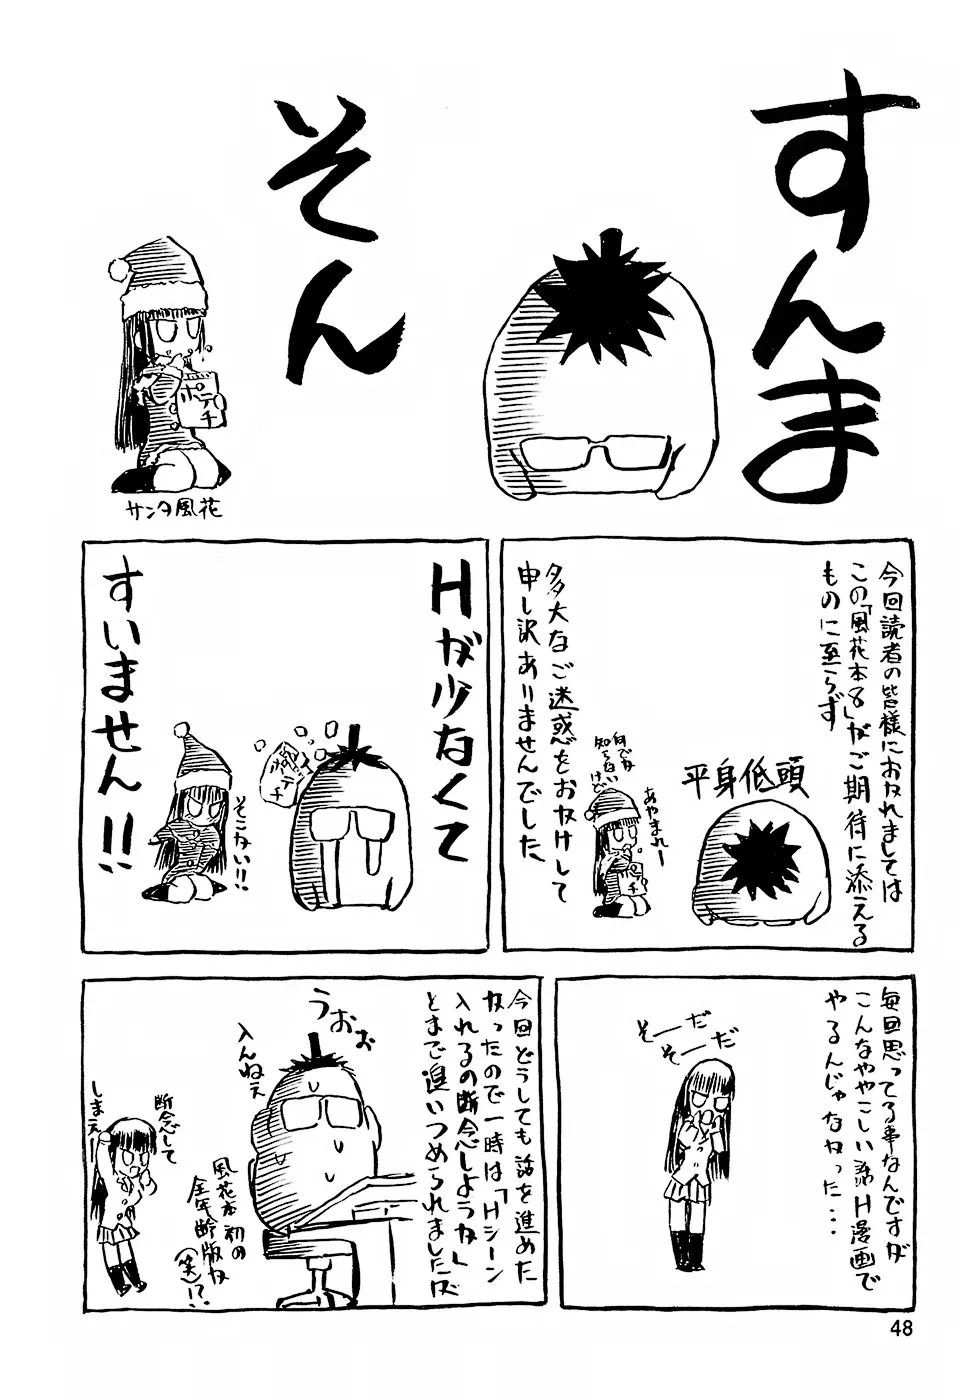 すんま
そん
ポテチ
サンタ風花
今回読者の皆様におかれましては
この「風花本8」がご期待に添える
ものに至らず
平身低頭
あやまれー
何でか
知らない
けど
多大なご迷惑をおかけして
申し訳ありませんでした
Hが少なくて
ポテチ
そこかい!!
すいません!!
毎回思ってる事なんですが
こんなややこしい話H漫画で
やるんじゃなかった・・・
そーだ
そーだ
今回どうしても話を進めた
かったので一時は「Hシーン
入れるの断念しようか」
とまで追いつめられましたが
うおぉ
入んねぇ
断念して
しまえ
風花本初の
全年齢版か
(笑)!?
48